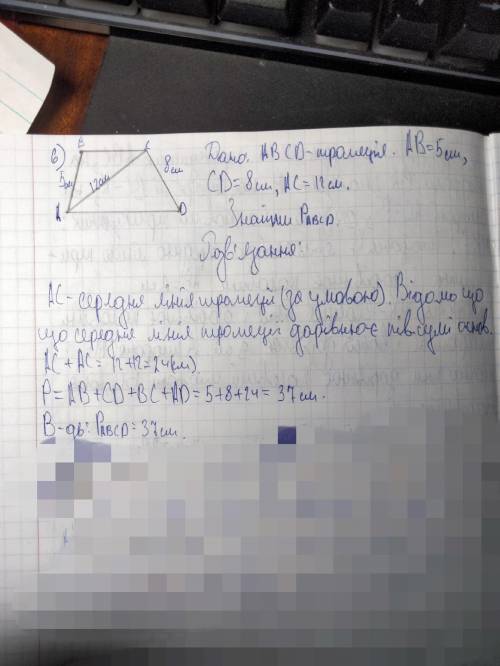 6)
B C
5см 12см 8см
A D
Дано. ABCD-трапеція. AB=5см,
CD=8см, AC=12см.
Знайти PABCD.
Розв'язання:
AC-середня лінія трапеції (за умовою). Відомо що
що середня лінія трапеції дорівнює півсумі основ.
AC+AC=12+12=24(см).
P=AB+CD+BC+AD=5+8+24=37см.
В-дь: PABCD=37см.